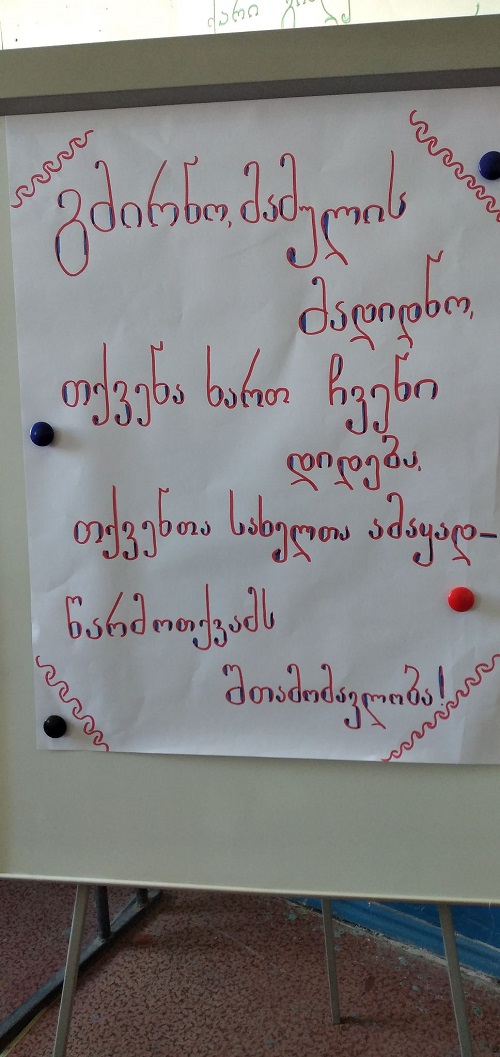 გმირნო, მამულის
მადიდნო,
თქვენა ხართ ჩვენი
დიდება.
თქვენთა სახელთა ამაყად-
წარმოთქვამს
შთამომავლობა!